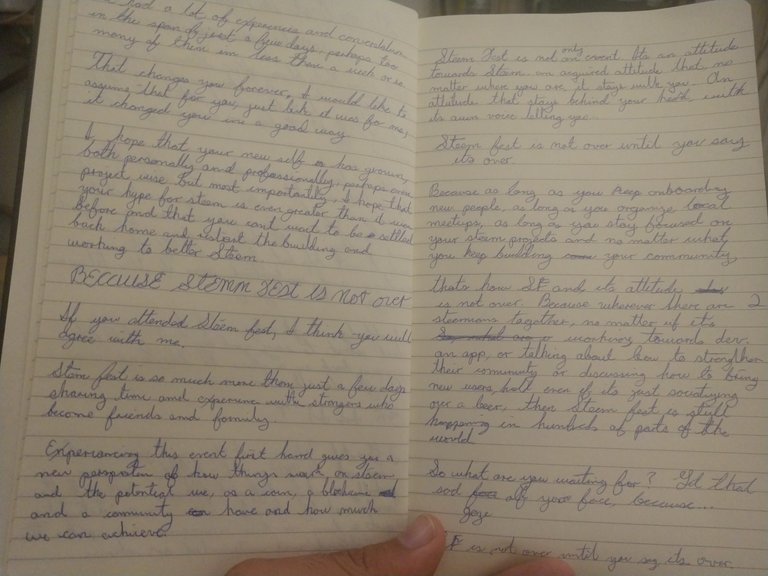 had a lot of experiences and conversation
in the span of just a few days, perhaps too
many of them in less than a week or so.
That changes you forever, I would like to
assume that for you, just like it was for me,
it changed you in a good way.
I hope that your new self has grown,
both personally and professionally, perhaps even
project wise but most importantly, I hope that
your hype for steem is even greater than it was
before and that you cant wait to be settled
back home and restart the building and
working to better Steem
BECAUSE STEEM FEST IS NOT OVER
If you attended Steem fest, I think you will
agree with me.
Steem fest is so much more than just a few days
sharing time and experience with strangers who
become friends and family.
Experiancing this event first hand gives you a
new perspective of how things work on steem
and the potential we, as a coin, a blockchain
and a community have and how much
we can achieve.
Steem Fest is not only an event its an attitude
towards Steem. an acquired attitude that no
matter where you are, it stays with you. An
attitude that stays behind your head with
its own voice telling you...
Steem fest is not over until you say
its over.
Because as long as you keep onboarding
new people, as long as you organize local
meetups, as long as you stay focused on
your steem projects and no matter what,
you keep building your community,
thats how SF and its attitude
is not over. Because wherever there are 2
steemians together, no matter if its
working towards dev.
an app, or talking about how to strengthen
their community or discussing how to bring
new users, hell even if its just socialising
over a beer, then Steem fest is still
happening in hundreds of parts of the
world
So what are you waiting for? that
sad off your face, because...
gaze
SF is not over until you say its over.